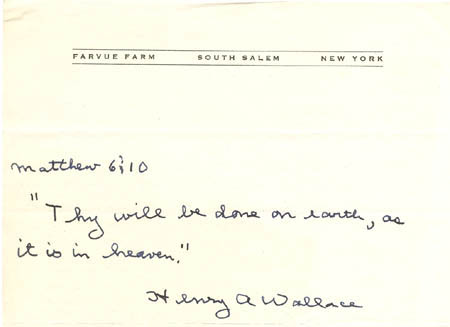 FARVUE FARM SOUTH SALEM NEW YORK
Matthew 6:10
"Thy will be done on earth, as
it is in heaven."
Henry A Wallace